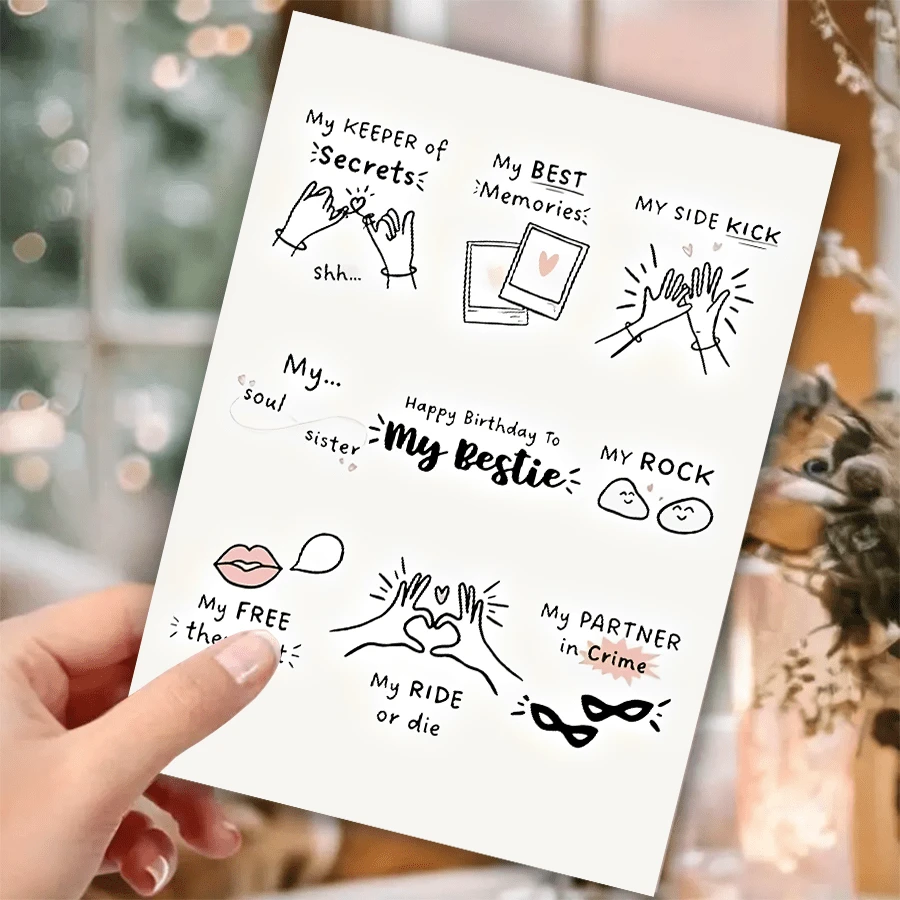 My KEEPER of
Secrets
shh...
My BEST
Memories
MY SIDE KICK
My...
soul
sister
Happy Birthday To
My Bestie
MY ROCK
My FREE
My RIDE
or die
My PARTNER
in Crime